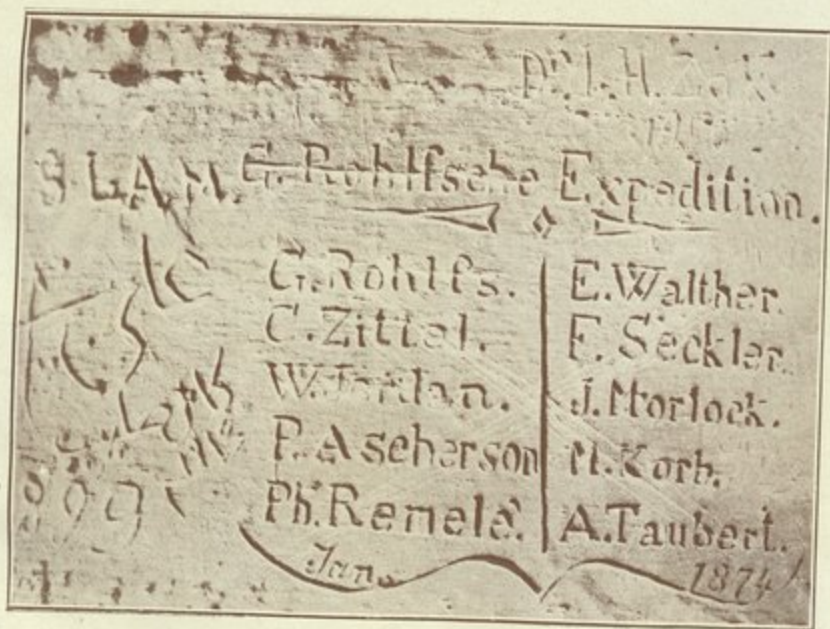 Dr. L. H.
S. L. A. M.
G. Rohlfsche Expedition.
G. Rohlfs.
C. Zittel.
W. Jordan.
P. Ascherson
Ph. Remelé.
E. Walther.
F. Seckler.
J. Morlock.
M. Korb.
A. Taubert.
Jan. 1874